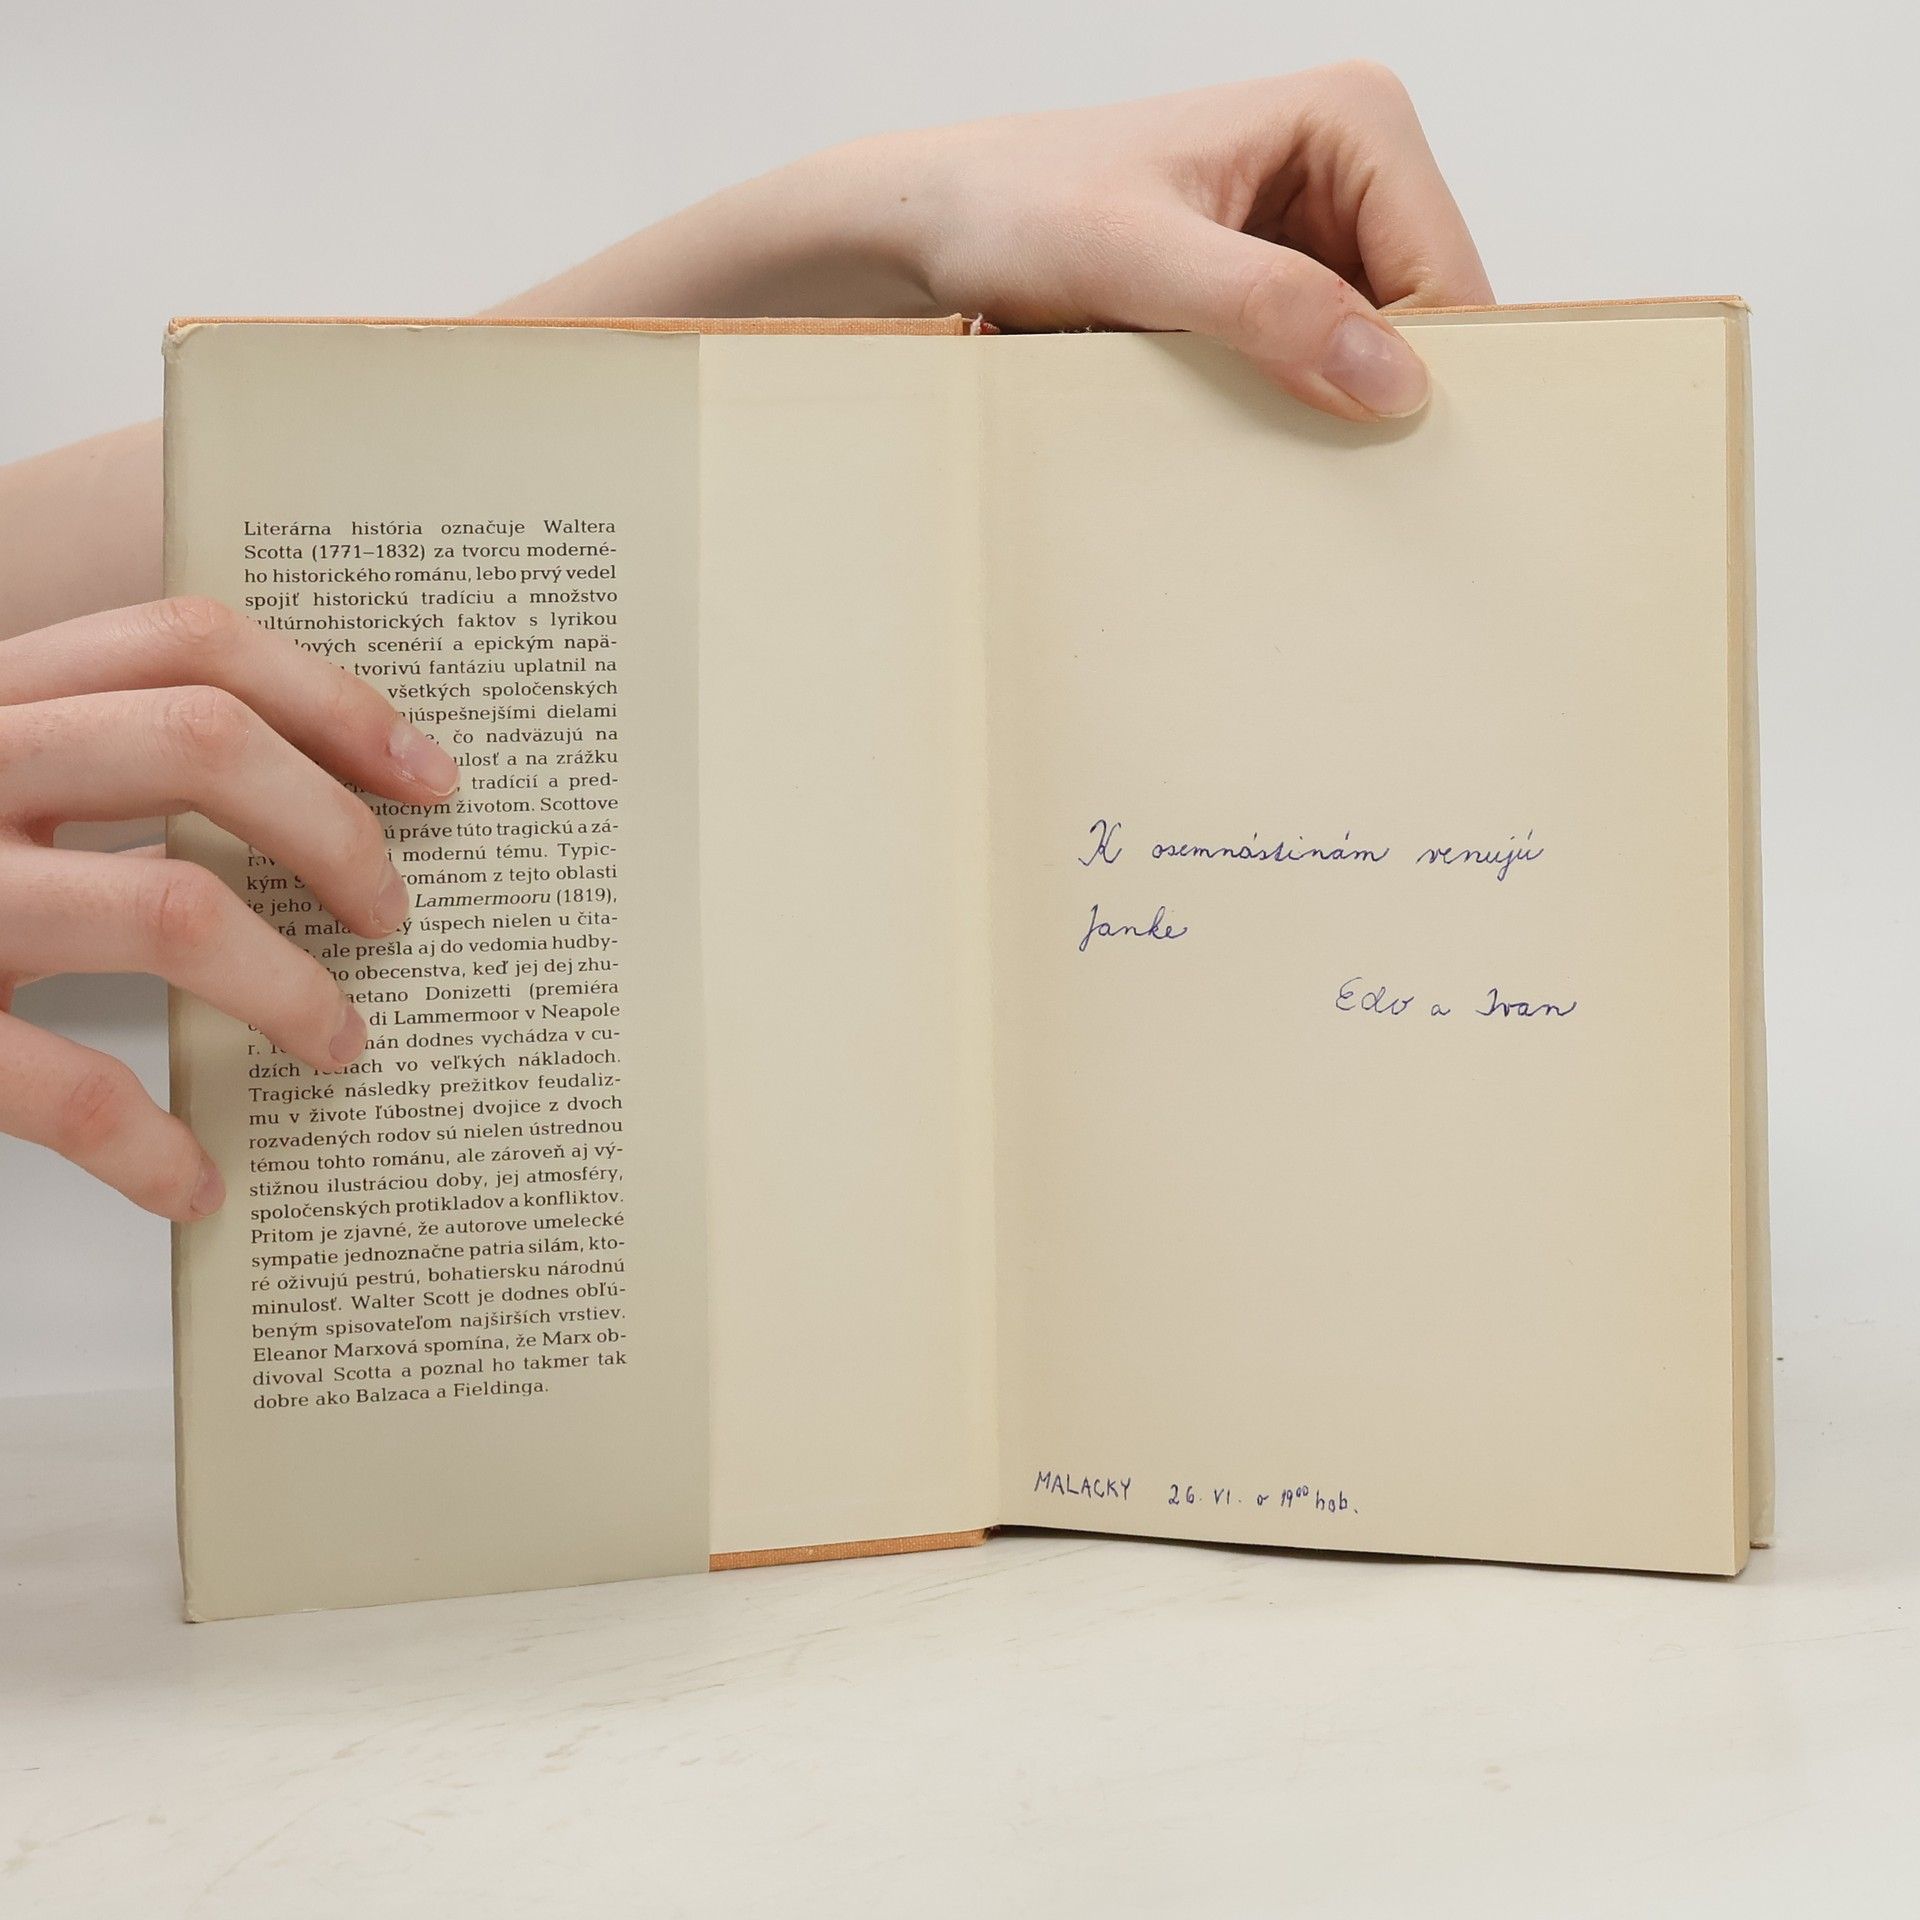 Literárna história označuje Waltera
Scotta (1771–1832) za tvorcu moderné-
ho historického románu, lebo prvý vedel
spojiť historickú tradíciu a množstvo
kultúrnohistorických faktov s lyrikou
scenérií a epickým napä-
tvorivú fantáziu uplatnil na
všetkých spoločenských
najúspešnejšími dielami
čo nadväzujú na
a na zrážku
tradícií a pred-
životom. Scottove
práve túto tragickú a zá-
modernú tému. Typic-
kým románom z tejto oblasti
je jeho Lammermooru (1819),
úspech nielen u čita-
ale prešla aj do vedomia hudby-
obecenstva, keď jej dej zhu-
Gaetano Donizetti (premiéra
di Lammermoor v Neapole
r. dodnes vychádza v cu-
dzích vo veľkých nákladoch.
Tragické následky prežitkov feudaliz-
mu v živote ľúbostnej dvojice z dvoch
rozvadených rodov sú nielen ústrednou
témou tohto románu, ale zároveň aj vý-
stižnou ilustráciou doby, jej atmosféry,
spoločenských protikladov a konfliktov.
Pritom je zjavné, že autorove umelecké
sympatie jednoznačne patria silám, kto-
ré oživujú pestrú, bohatiersku národnú
minulosť. Walter Scott je dodnes obľú-
beným spisovateľom najširších vrstiev.
Eleanor Marxová spomína, že Marx ob-
divoval Scotta a poznal ho takmer tak
dobre ako Balzaca a Fieldinga.
K osemnástinám venujú
Janke
Edo a Ivan
MALACKY 26. VI. o 19⁰⁰ hob.